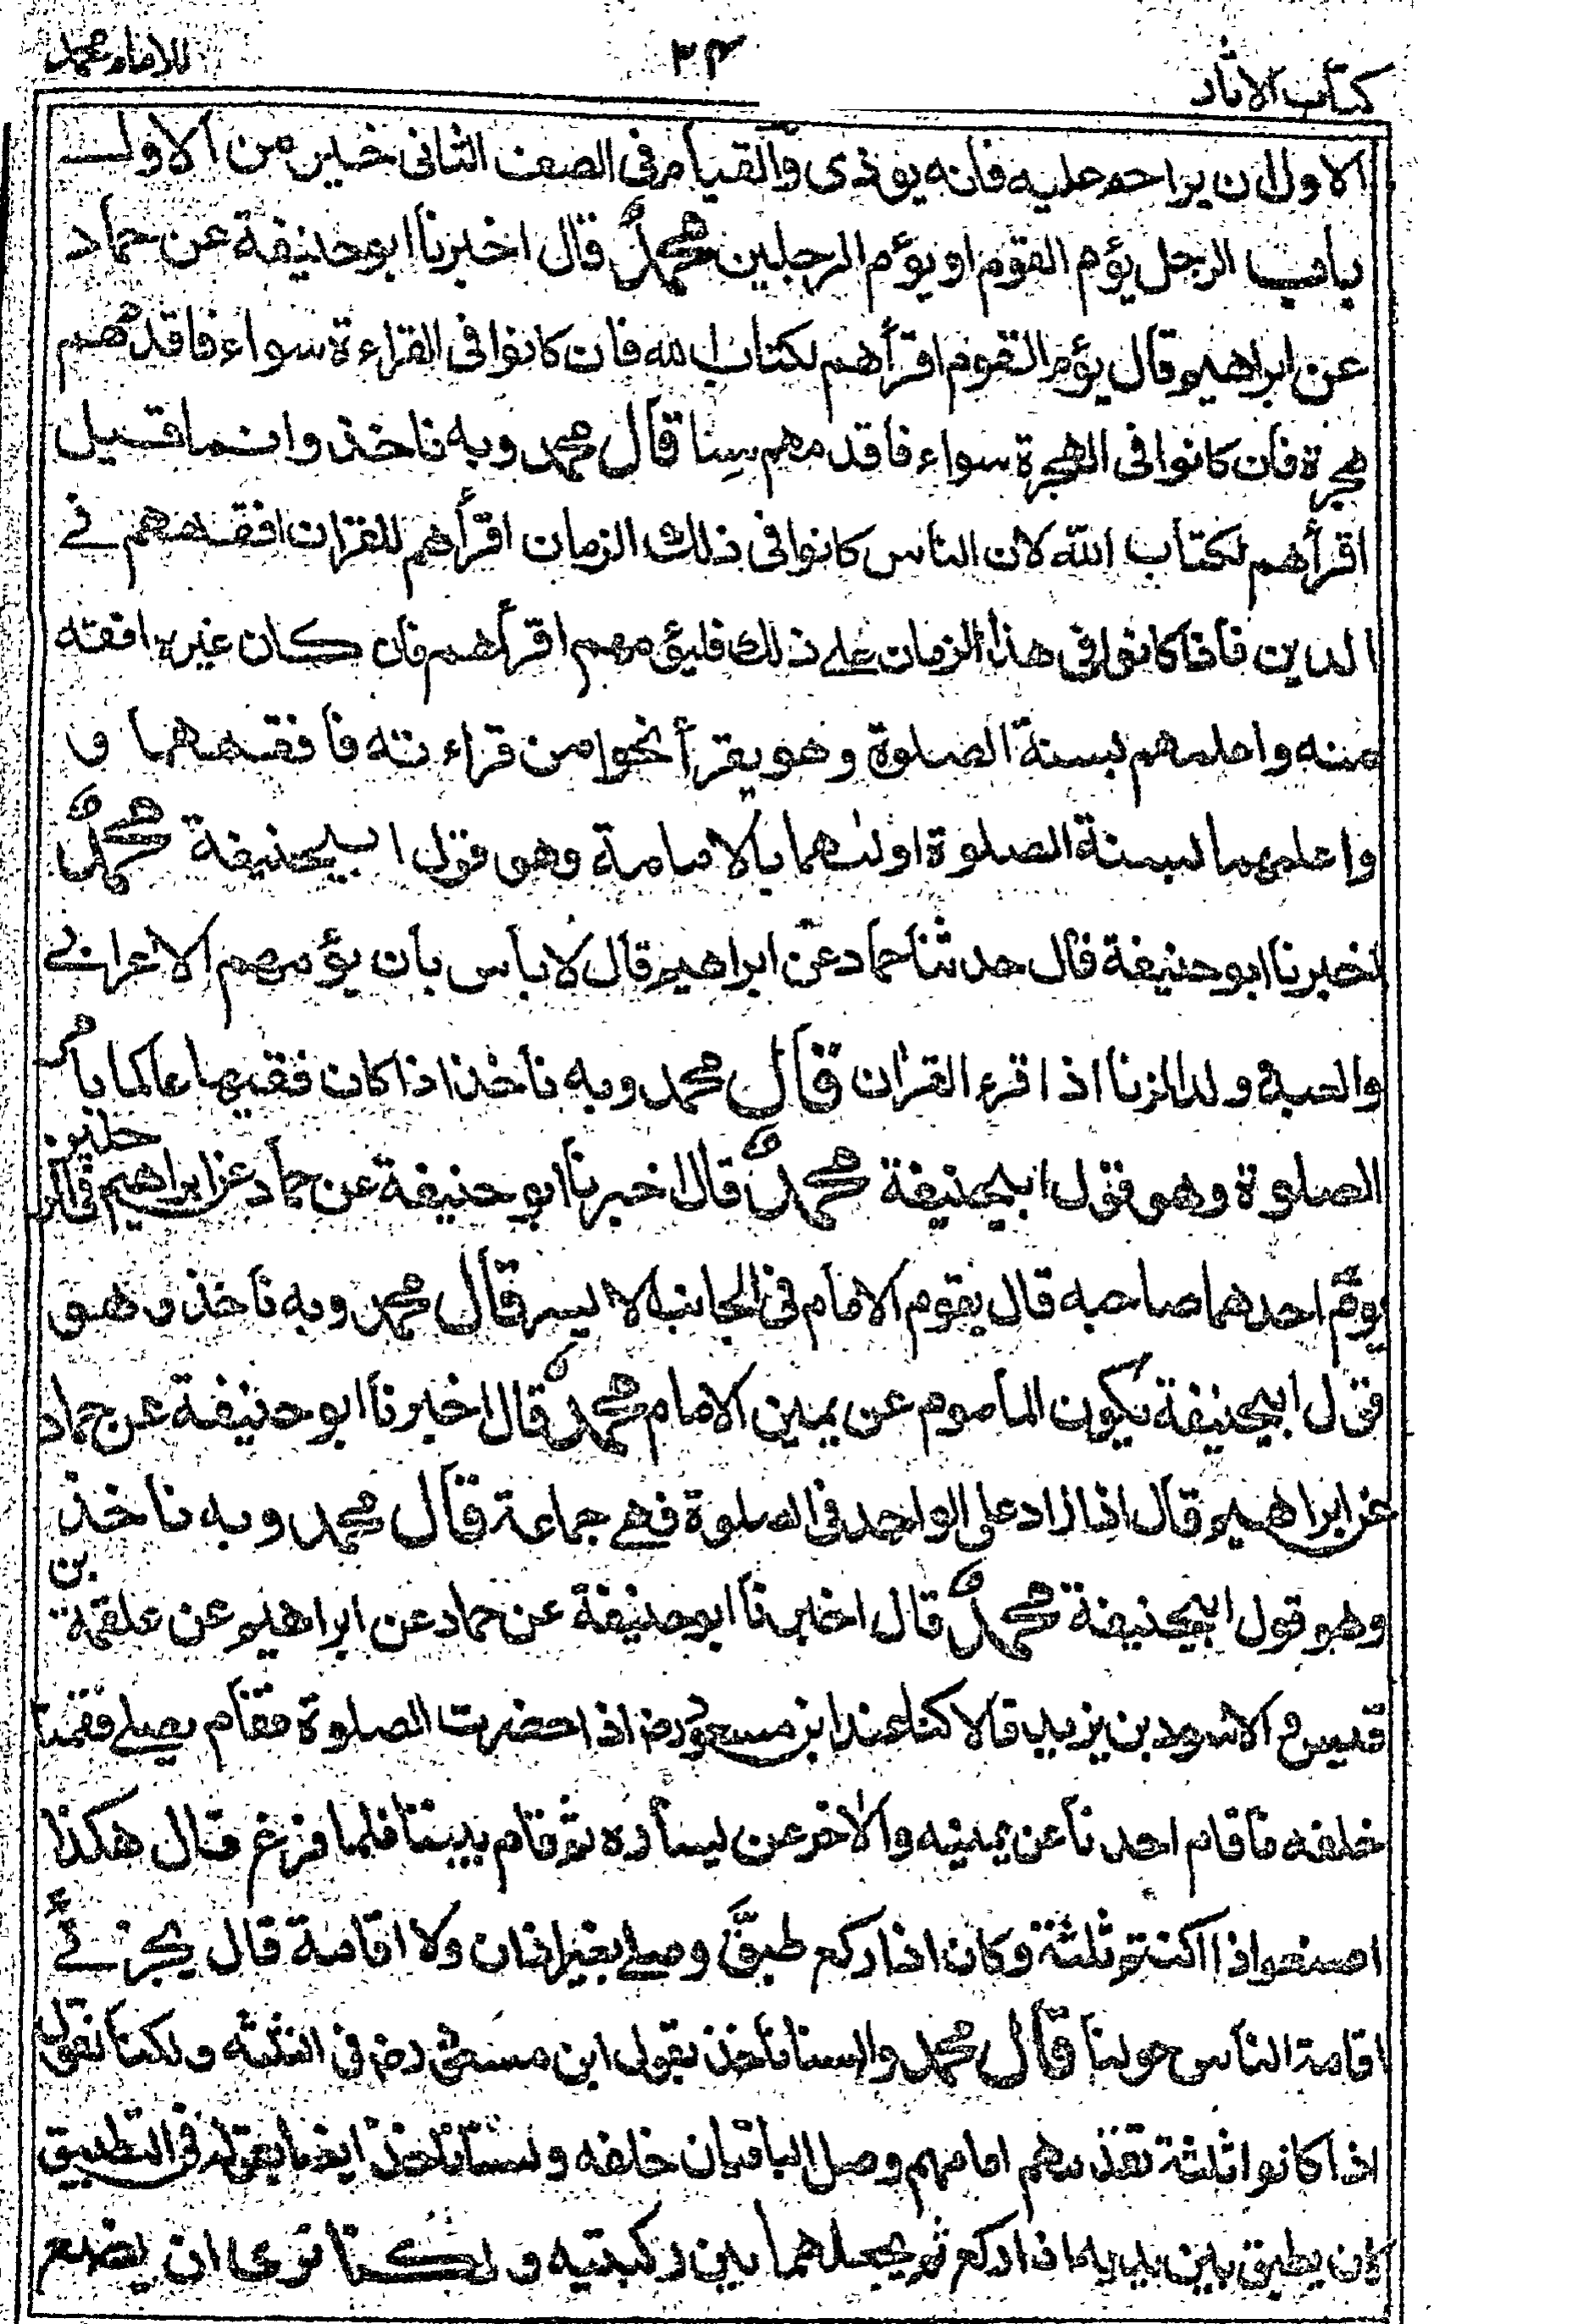 كتاب الاثار
٢٤
للامام محمد
الاول ان يزاحم عليه فانه يوذى والقيام فى الصف الثانى خير من الاول
باب الرجل يؤم القوم او يؤم الرجلين محمدٌ قال اخبرنا ابوحنيفة عن حماد
عن ابراهيم قال يؤم القوم اقرأهم لكتاب الله فان كانوا فى القراءة سواء فاقدمهم
هجرة فان كانوا فى الهجرة سواء فاقدمهم سنا قال محمد وبه ناخذ وانما قيل
اقرأهم لكتاب الله لان الناس كانوا فى ذلك الزمان اقرأهم للقران افقههم فے
الدين فاذا كانوا فى هذا الزمان علے ذلك فليؤمهم اقرأهم فان كان غيره افقه
منه واعلمهم بسنة الصلوة وهو يقرأ نحوا من قراءته فافقههما و
واعلمهما بسنة الصلوة اولٰهما بالامامة وهو قول ابيحنيفة محمدٌ
اخبرنا ابوحنيفة قال حدثنا حماد عن ابراهيم قال لا باس بان يؤمهم الاعرابے
والعبد ولد الزنا اذا قرء القران قال محمد وبه ناخذ اذا كان فقيها عالما بامر
الصلوة وهو قول ابيحنيفة محمدٌ قال اخبرنا ابوحنيفة عن حماد عن ابراهيم فى الرجلين
يؤم احدهما صاحبه قال يقوم الامام فى الجانب الايسر قال محمد وبه ناخذ وهو
قول ابيحنيفة يكون الماموم عن يمين الامام محمدٌ قال اخبرنا ابوحنيفة عن حماد
عن ابراهيم قال اذا زاد على الواحد فى الصلوة فهے جماعة قال محمد وبه ناخذ
وهو قول ابيحنيفة محمدٌ قال اخبرنا ابوحنيفة عن حماد عن ابراهيم عن علقمة بن
قيس و الاسود بن يزيد قالا كنا عند ابن مسعود رض اذا حضرت الصلوة فقام يصلے فقمنا
خلفه فاقام احدنا عن يمينه والاخر عن يساره ثم قام بيننا فلما فرغ قال هكذا
اصنعوا اذا كنتم ثلثة وكان اذا ركع طبقَّ وصلے بغير اذان ولا اقامة قال يجزئے
اقامة الناس حولنا قال محمد ولسنا ناخذ بقول ابن مسعود رض فى الثلثة ولكنا نقول
اذا كانوا ثلثة تقدمهم امامهم وصل الباقيان خلفه ولسنا ناخذ ايضا بقوله فى التطبيق
كان يطبق بين يديه اذا ركع ثم يجعلهما بين ركبتيه ولكنا نرى ان يضع